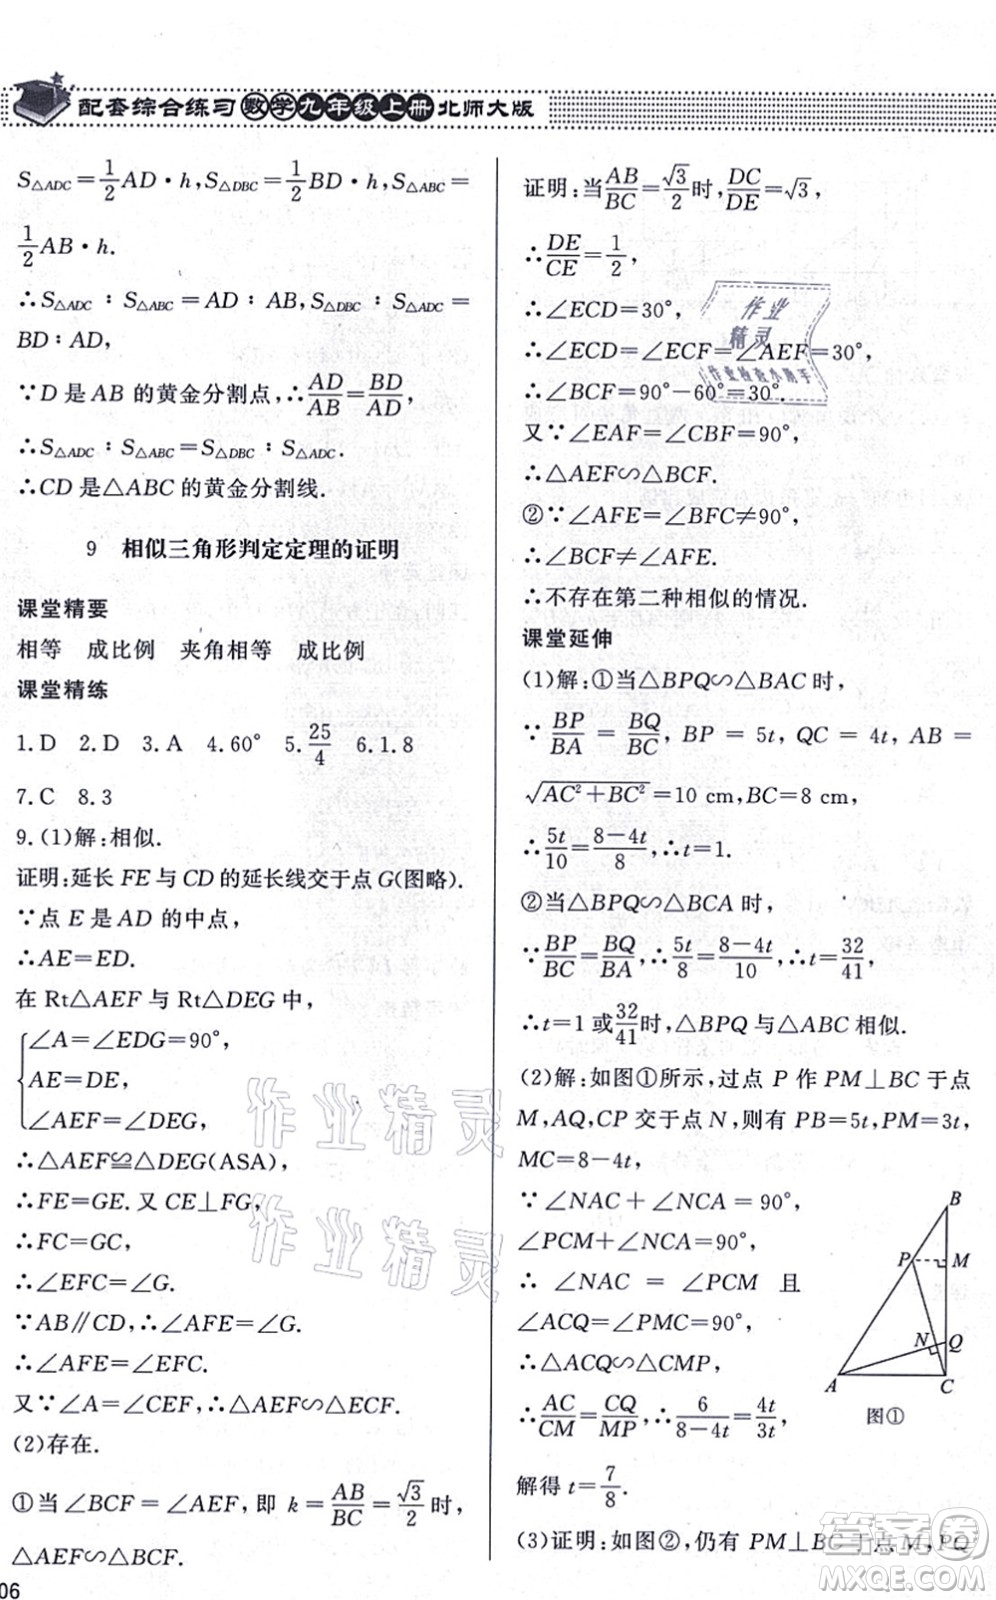 配套综合练习 数学九年级上册 北师大版
S△ADC=1/2 AD·h,S△DBC=1/2 BD·h,S△ABC=
1/2 AB·h.
∴S△ADC∶S△ABC=AD∶AB,S△DBC∶S△ADC=
BD∶AD,
∵D是AB的黄金分割点,∴AD/AB=BD/AD,
∴S△ADC∶S△ABC=S△DBC∶S△ADC.
∴CD是△ABC的黄金分割线.
9 相似三角形判定定理的证明
课堂精要
相等 成比例 夹角相等 成比例
课堂精练
1.D 2.D 3.A 4.60° 5.25/4 6.1.8
7.C 8.3
9.(1)解:相似.
证明:延长FE与CD的延长线交于点G(图略).
∵点E是AD的中点,
∴AE=ED.
在Rt△AEF与Rt△DEG中,
∠A=∠EDG=90°,
AE=DE,
∠AEF=∠DEG,
∴△AEF≌△DEG(ASA),
∴FE=GE.又CE⊥FG,
∴FC=GC,
∴∠EFC=∠G.
∵AB∥CD,∴∠AFE=∠G.
∴∠AFE=∠EFC.
又∵∠A=∠CEF,∴△AEF∽△ECF.
(2)存在.
①当∠BCF=∠AEF,即k=AB/BC=√3/2时,
△AEF∽△BCF.
06
证明:当AB/BC=√3/2时,DC/DE=√3,
∴DE/CE=1/2,
∴∠ECD=30°,
∴∠ECD=∠ECF=∠AEF=30°,
∴∠BCF=90°-60°=30°.
又∵∠EAF=∠CBF=90°,
∴△AEF∽△BCF.
②∵∠AFE=∠BFC≠90°,
∴∠BCF≠∠AFE.
∴不存在第二种相似的情况.
课堂延伸
(1)解:①当△BPQ∽△BAC时,
∵BP/BA=BQ/BC,BP=5t,QC=4t,AB=
√(AC²+BC²)=10 cm,BC=8 cm,
∴5t/10=(8-4t)/8,∴t=1.
②当△BPQ∽△BCA时,
∴BP/BC=BQ/BA,∴5t/8=(8-4t)/10,∴t=32/41,
∴t=1或32/41时,△BPQ与△ABC相似.
(2)解:如图①所示,过点P作PM⊥BC于点
M,AQ,CP交于点N,则有PB=5t,PM=3t,
MC=8-4t,
∵∠NAC+∠NCA=90°,
∠PCM+∠NCA=90°,
∴∠NAC=∠PCM且
∠ACQ=∠PMC=90°,
∴△ACQ∽△CMP,
∴AC/CM=CQ/MP,∴6/(8-4t)=4t/3t,
解得t=7/8.
(3)证明:如图②,仍有PM⊥BC于点M,PQ
B
P
M
N
Q
A
C
图①
作业
精灵
作业检查小助手
作业精灵
作业精灵
答案圈
MXQE.COM